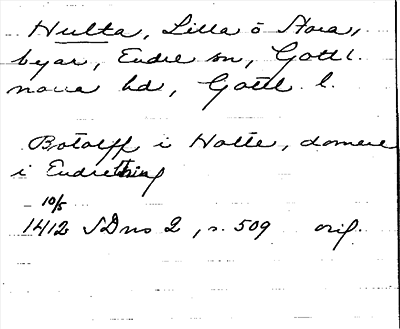 Hulta, Lilla o Stora,
byar, Endre sn, Gotl.
norra hd, Gotl. l.
Botolff i Holte, domere
i Endrething
10/5
1412 SD ns 2, s. 509 orig.